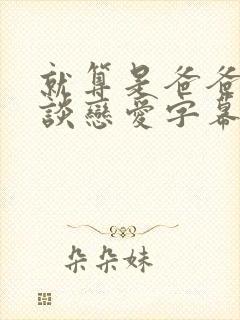 就算是爸爸
談戀愛字幕
朵朵妹